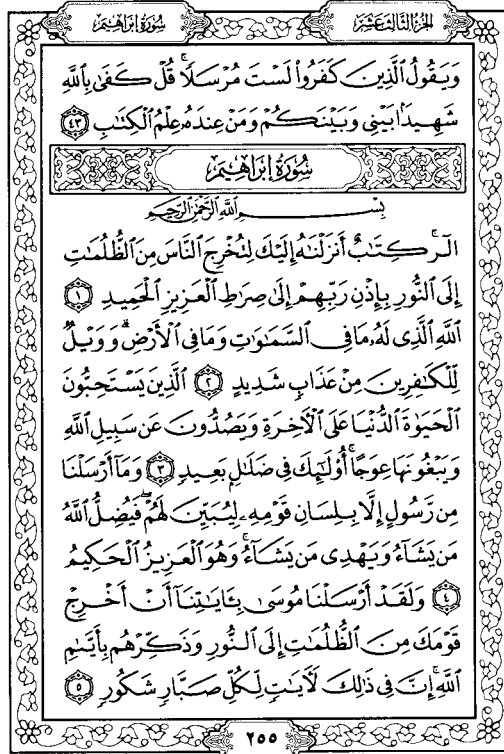 سُورَةُ إِبْرَاهِيمَ
الجُزْءُ الثَّالِثَ عَشَرَ
وَيَقُولُ ٱلَّذِينَ كَفَرُواْ لَسْتَ مُرْسَلًا ۚ قُلْ كَفَىٰ بِٱللَّهِ
شَهِيدًۢا بَيْنِى وَبَيْنَكُمْ وَمَنْ عِندَهُۥ عِلْمُ ٱلْكِتَٰبِ ٤٣
سُورَةُ إِبْرَاهِيمَ
بِسْمِ ٱللَّهِ ٱلرَّحْمَٰنِ ٱلرَّحِيمِ
الٓر ۚ كِتَٰبٌ أَنزَلْنَٰهُ إِلَيْكَ لِتُخْرِجَ ٱلنَّاسَ مِنَ ٱلظُّلُمَٰتِ
إِلَى ٱلنُّورِ بِإِذْنِ رَبِّهِمْ إِلَىٰ صِرَٰطِ ٱلْعَزِيزِ ٱلْحَمِيدِ ١
ٱللَّهِ ٱلَّذِى لَهُۥ مَا فِى ٱلسَّمَٰوَٰتِ وَمَا فِى ٱلْأَرْضِ ۗ وَوَيْلٌ
لِّلْكَٰفِرِينَ مِنْ عَذَابٍ شَدِيدٍ ٢ ٱلَّذِينَ يَسْتَحِبُّونَ
ٱلْحَيَوٰةَ ٱلدُّنْيَا عَلَى ٱلْأَخِرَةِ وَيَصُدُّونَ عَن سَبِيلِ ٱللَّهِ
وَيَبْغُونَهَا عِوَجًا ۚ أُوْلَٰٓئِكَ فِى ضَلَٰلٍۭ بَعِيدٍ ٣ وَمَآ أَرْسَلْنَا
مِن رَّسُولٍ إِلَّا بِلِسَانِ قَوْمِهِۦ لِيُبَيِّنَ لَهُمْ ۖ فَيُضِلُّ ٱللَّهُ
مَن يَشَآءُ وَيَهْدِى مَن يَشَآءُ ۚ وَهُوَ ٱلْعَزِيزُ ٱلْحَكِيمُ
٤ وَلَقَدْ أَرْسَلْنَا مُوسَىٰ بِـَٔايَٰتِنَآ أَنْ أَخْرِجْ
قَوْمَكَ مِنَ ٱلظُّلُمَٰتِ إِلَى ٱلنُّورِ وَذَكِّرْهُم بِأَيَّىٰمِ
ٱللَّهِ ۚ إِنَّ فِى ذَٰلِكَ لَأٓيَٰتٍ لِّكُلِّ صَبَّارٍ شَكُورٍ ٥
٢٥٥